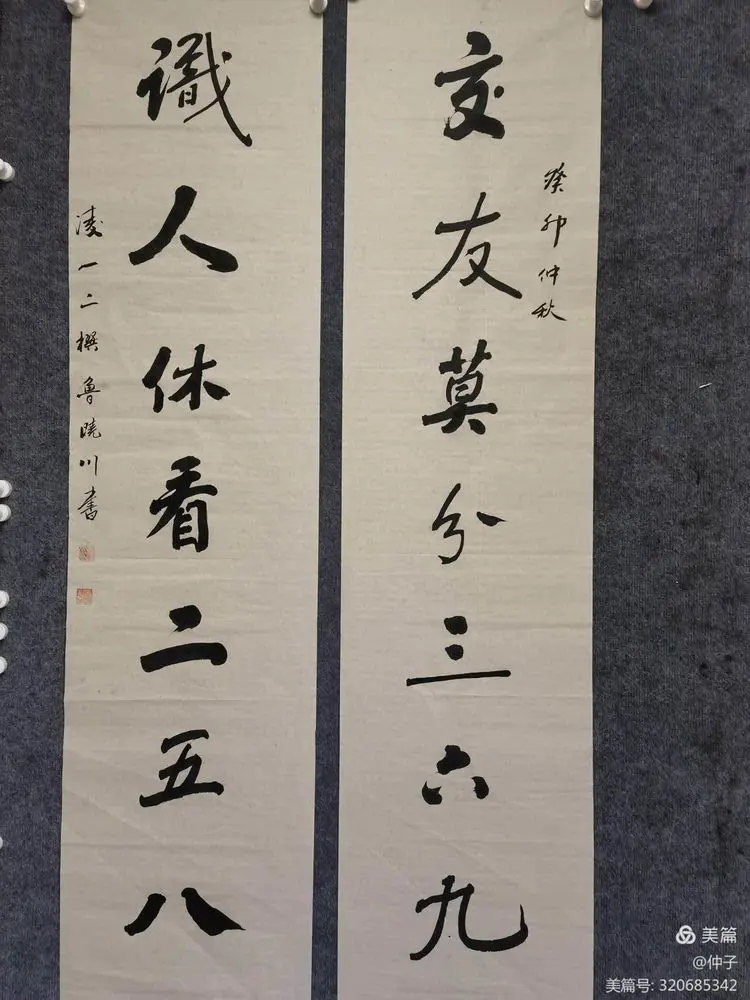 交友莫分三六九
癸卯仲秋
識人休看二五八
凌一二撰魯曉川書
美篇
@仲子
美篇号: 320685342